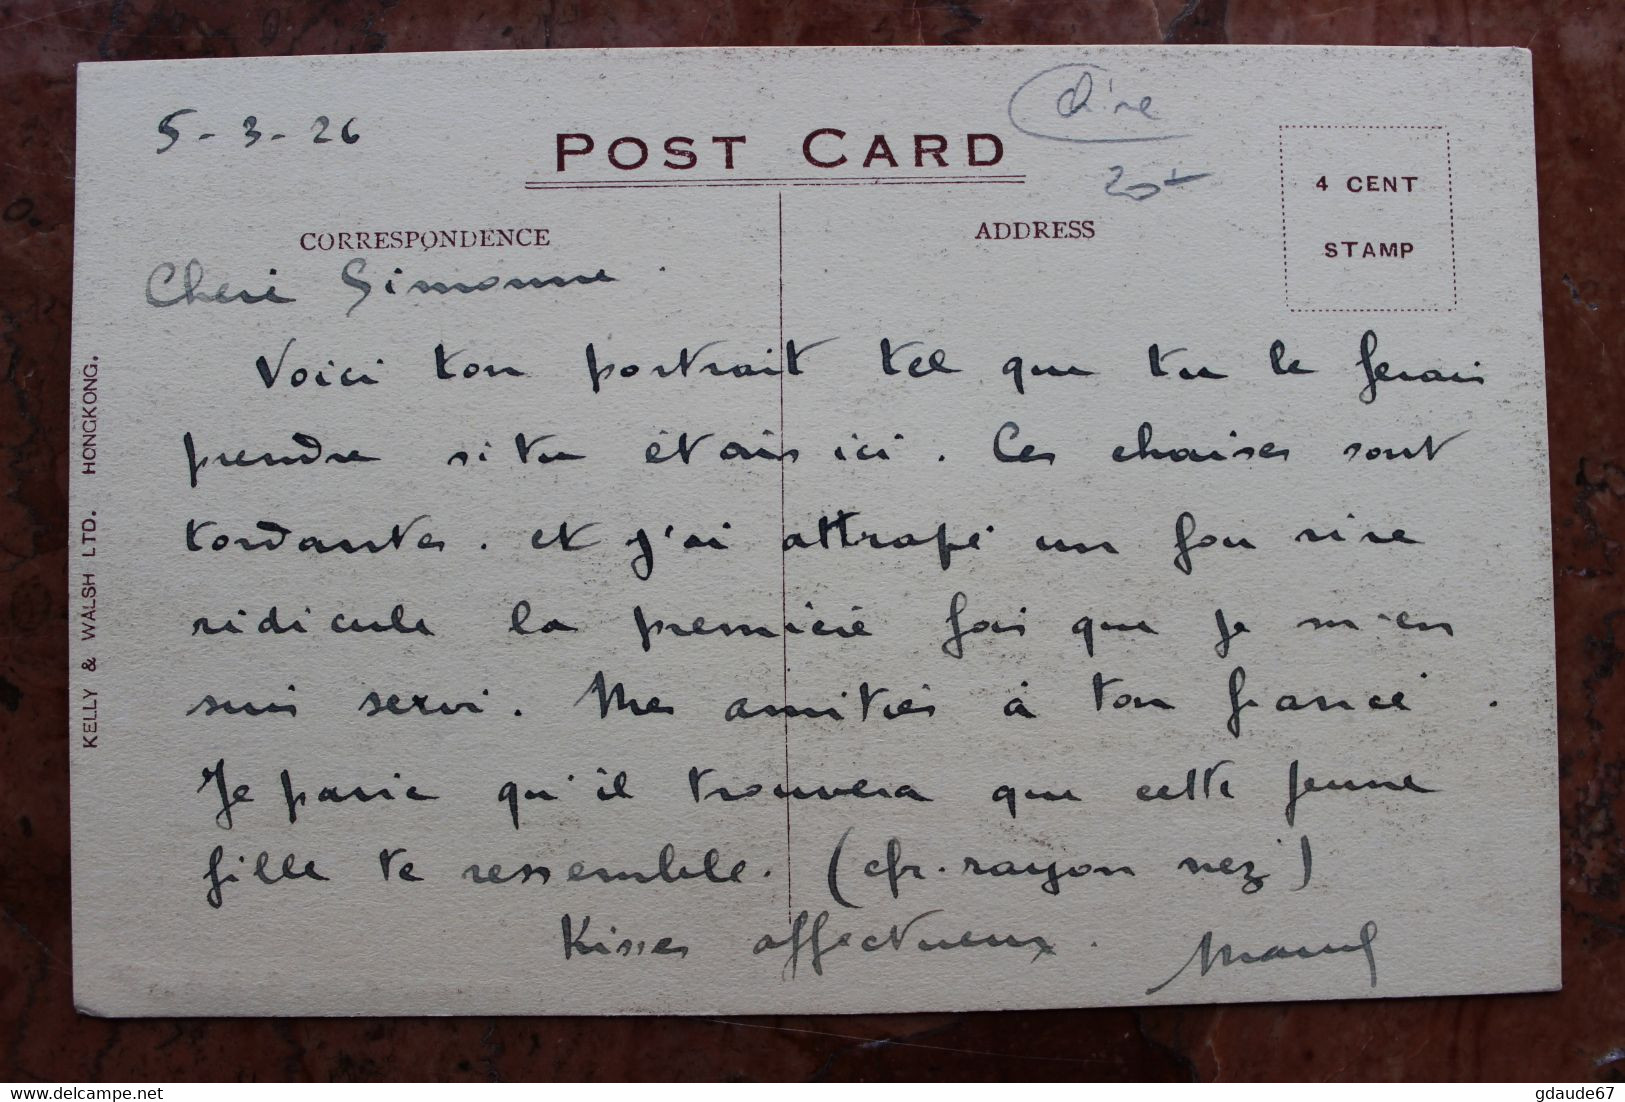 5-3-26
POST CARD
Chine
20
4 CENT
STAMP
CORRESPONDENCE
ADDRESS
Cheri Simonne.
Voici ton portrait tel que tu le ferais
prendre si tu étais ici. Ces chaises sont
tordantes. et j'ai attrapé un fou rire
ridicule la première fois que je m'en
suis servi. Mes amitiés à ton fiancé.
Je parie qu'il trouvera que cette jeune
fille te ressemble. (cfr. rayon nez)
Kisses affectueux. Marcel
KELLY & WALSH LTD. HONGKONG.
delcampe.net
gdaude67